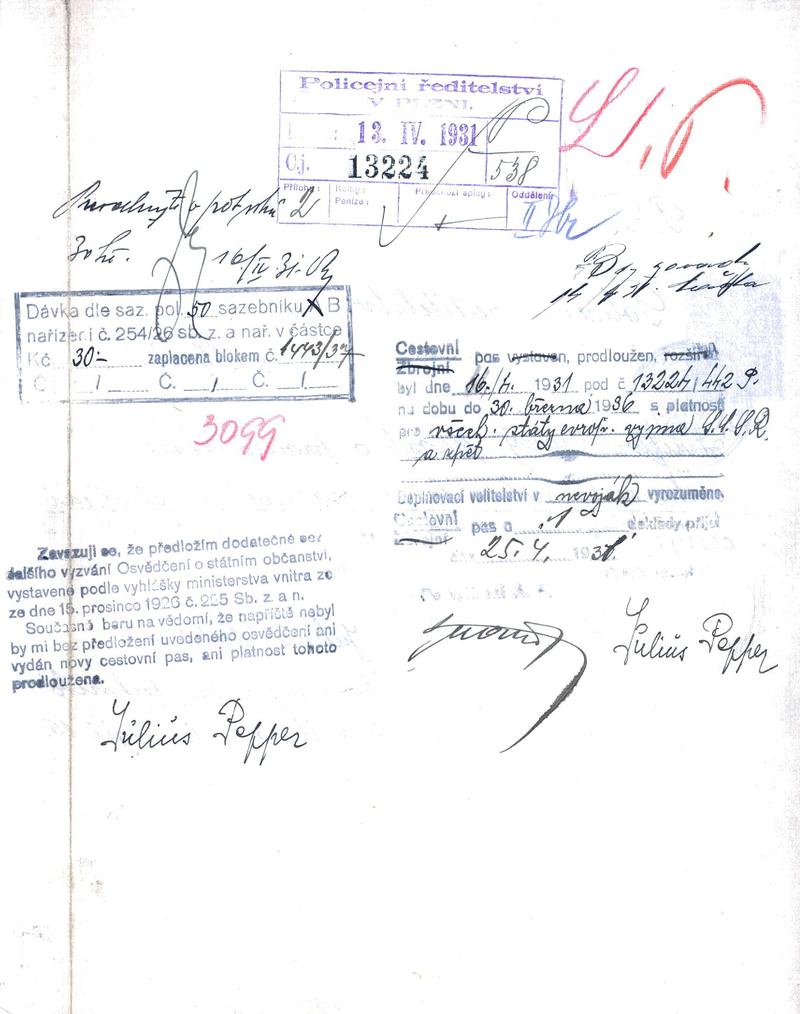 Policejní ředitelství
V PLZNI.
13. IV. 1931
Čj. 13224
538
Přílohy: 2
Kolky:
Peníze:
Předchozí spisy:
Oddělení:
II
30 Kč.
Dávka dle saz. pol. 50 sazebníku B
nařízení č. 254/26 sb. z. a nař. v částce
Kč 30- zaplacena blokem č. 1443/37
Č. / Č. / Č. /
3099
Cestovní pas vystaven, prodloužen, rozšířen
Zbrojní
byl dne 16./4. 1931 pod č 13224/442 P.
na dobu do 30. března 1936 s platností
pro všech. státy evrop. vyjma S.S.S.R.
a zpět
Doplňovací velitelství v nevoják vyrozuměno.
Cestovní pas a 1 doklady přijal
Zbrojní
25.4. 1931
Zavazuji se, že předložím dodatečně bez
dalšího vyzvání Osvědčení o státním občanství,
vystavené podle vyhlášky ministerstva vnitra ze
ze dne 15. prosince 1926 č. 225 Sb. z. a n.
Současně beru na vědomí, že napříště nebyl
by mi bez předložení uvedeného osvědčení ani
vydán nový cestovní pas, ani platnost tohoto
prodloužena.
Július Pepper
Július Pepper